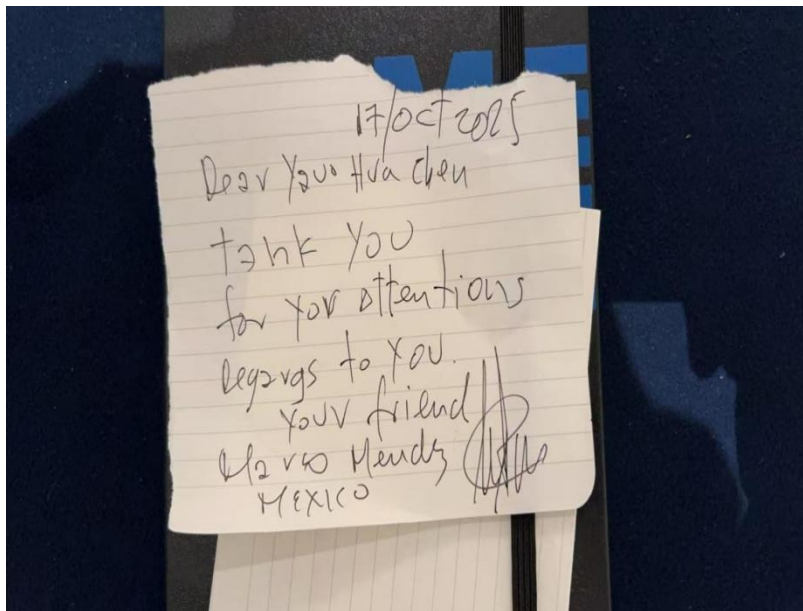 17/OCT 2025
Dear Yauo Hua Chen
tank YOU
for YOU attentions
Regargs to YOU.
YOUV friend
Marco Mendz
MEXICO